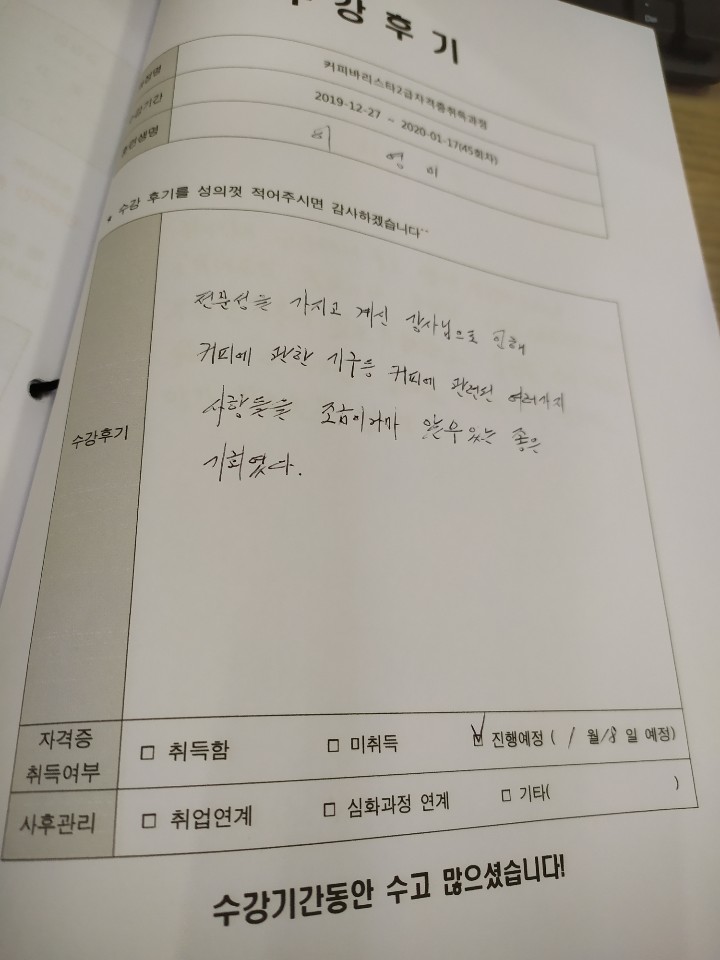 수강후기
과정명 커피바리스타2급자격증취득과정
수강기간 2019-12-27 ~ 2020-01-17(45회차)
훈련생명 영미
* 수강 후기를 성의껏 적어주시면 감사하겠습니다^^
수강후기
전문성을 가지고 계신 강사님으로 인해
커피에 관한 기구등 커피에 관련된 여러가지
사항들을 조금이나마 알수있는 좋은
기회였다.
자격증 취득여부 □ 취득함 □ 미취득 ☑ 진행예정 ( 1 월 18 일 예정)
사후관리 □ 취업연계 □ 심화과정 연계 □ 기타( )
수강기간동안 수고 많으셨습니다!